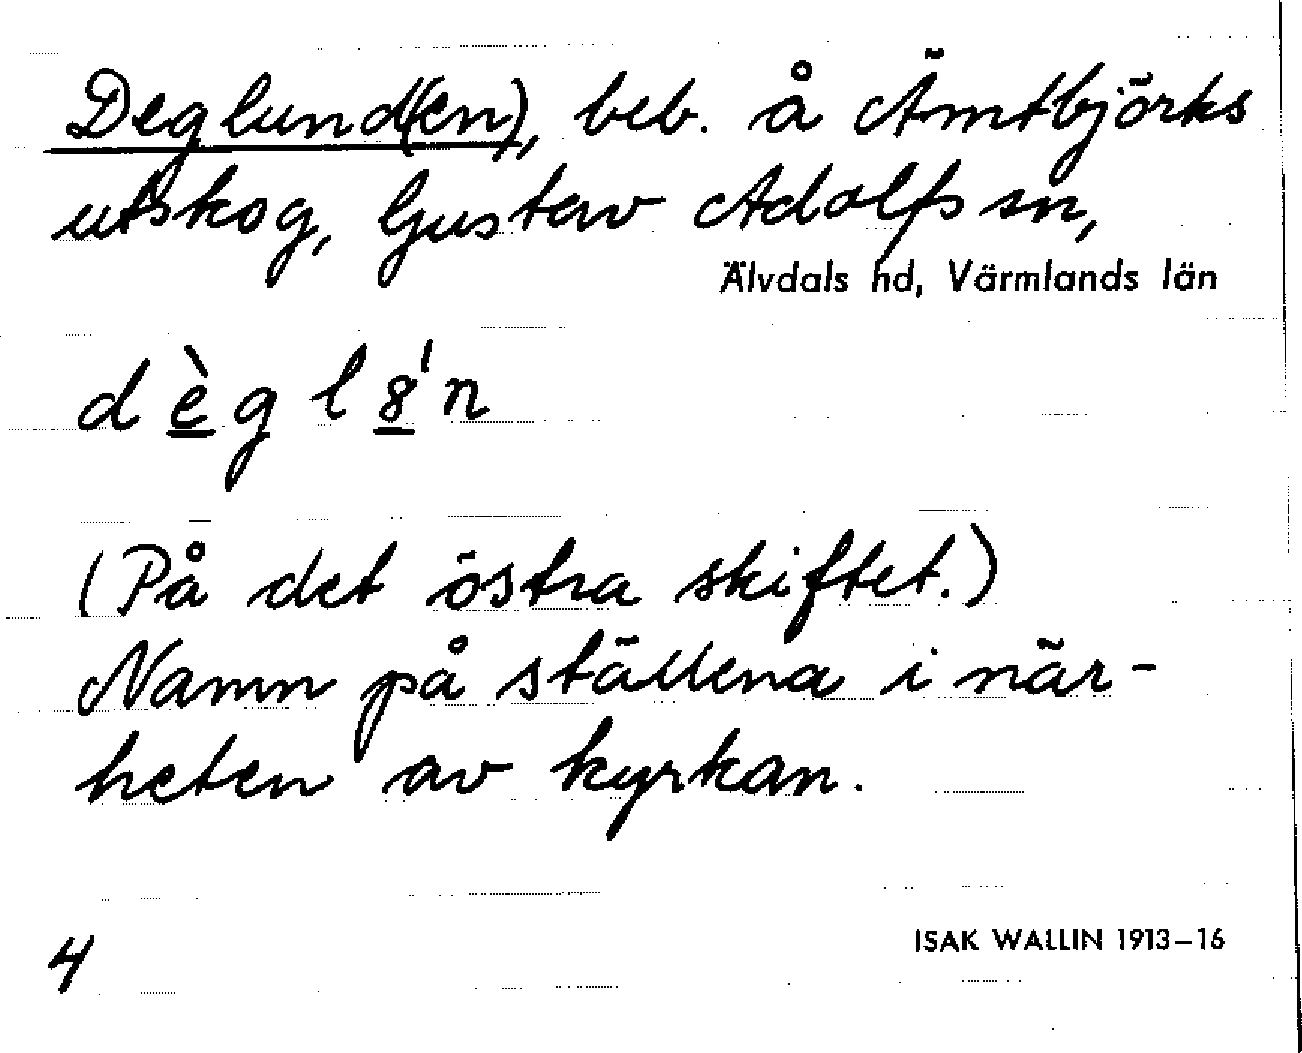 Deglund(en), beb. å Ämtbjörks
utskog, Gustav Adolfs sn,
Älvdals hd, Värmlands län
dègl8'n
(På det östra skiftet.)
Namn på ställena i när-
heten av kyrkan.
4
ISAK WALLIN 1913–16